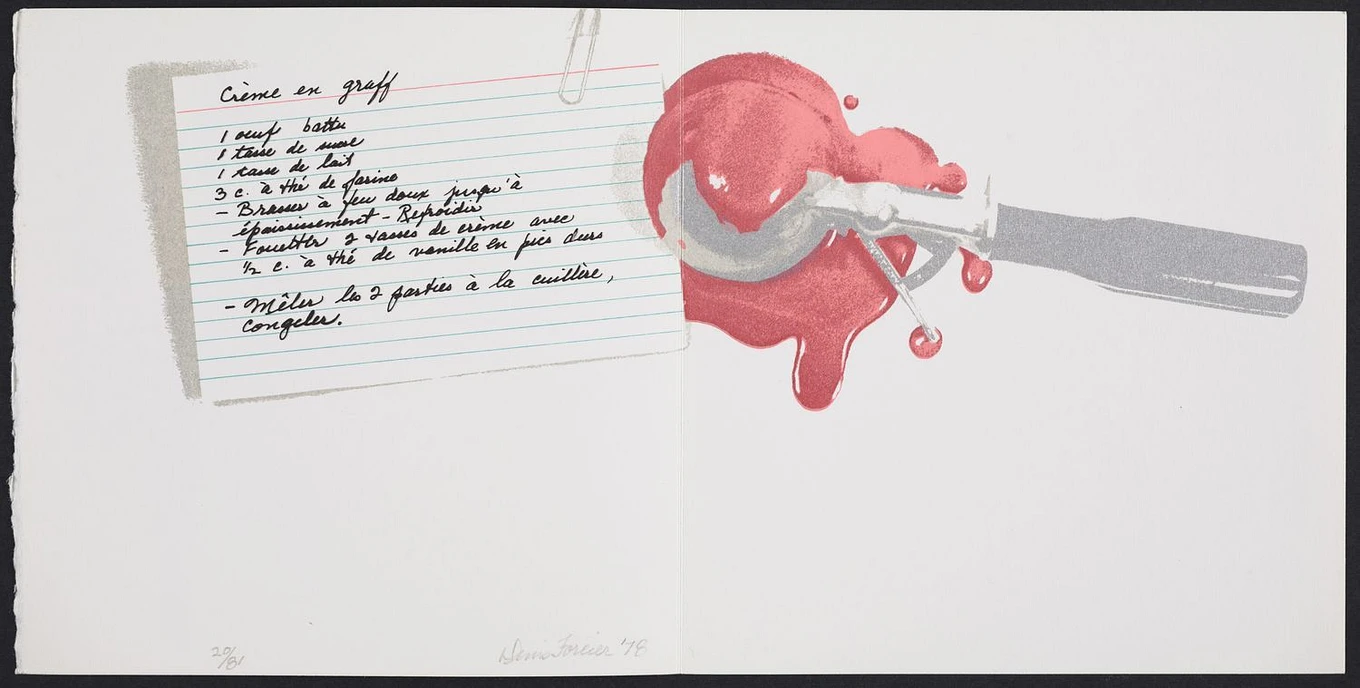 Crème en graff
1 oeuf battu
1 tasse de sucre
1 tasse de lait
3 c. à thé de farine
- Brasser à feu doux jusqu'à
épaississement - Refroidir
- Fouetter 2 tasses de crème avec
½ c. à thé de vanille en pics durs
- Mêler les 2 parties à la cuillère,
congeler.
20/81
Denis Forcier '78